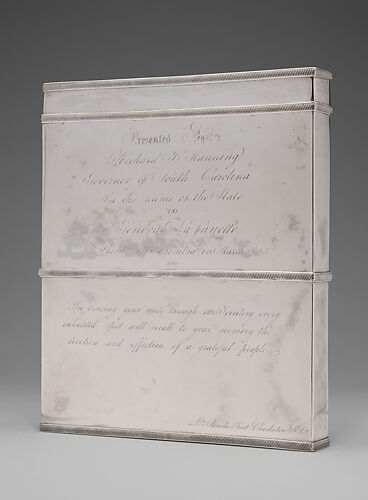 Presented By
Richard I. Manning
Governor of South Carolina
In the name of the State
TO
General La fayette
Columbia in March
In tracing your route through our Territory every
inhabited spot will recall to your memory the
devotion and affection of a grateful people
Charleston So. Ca.